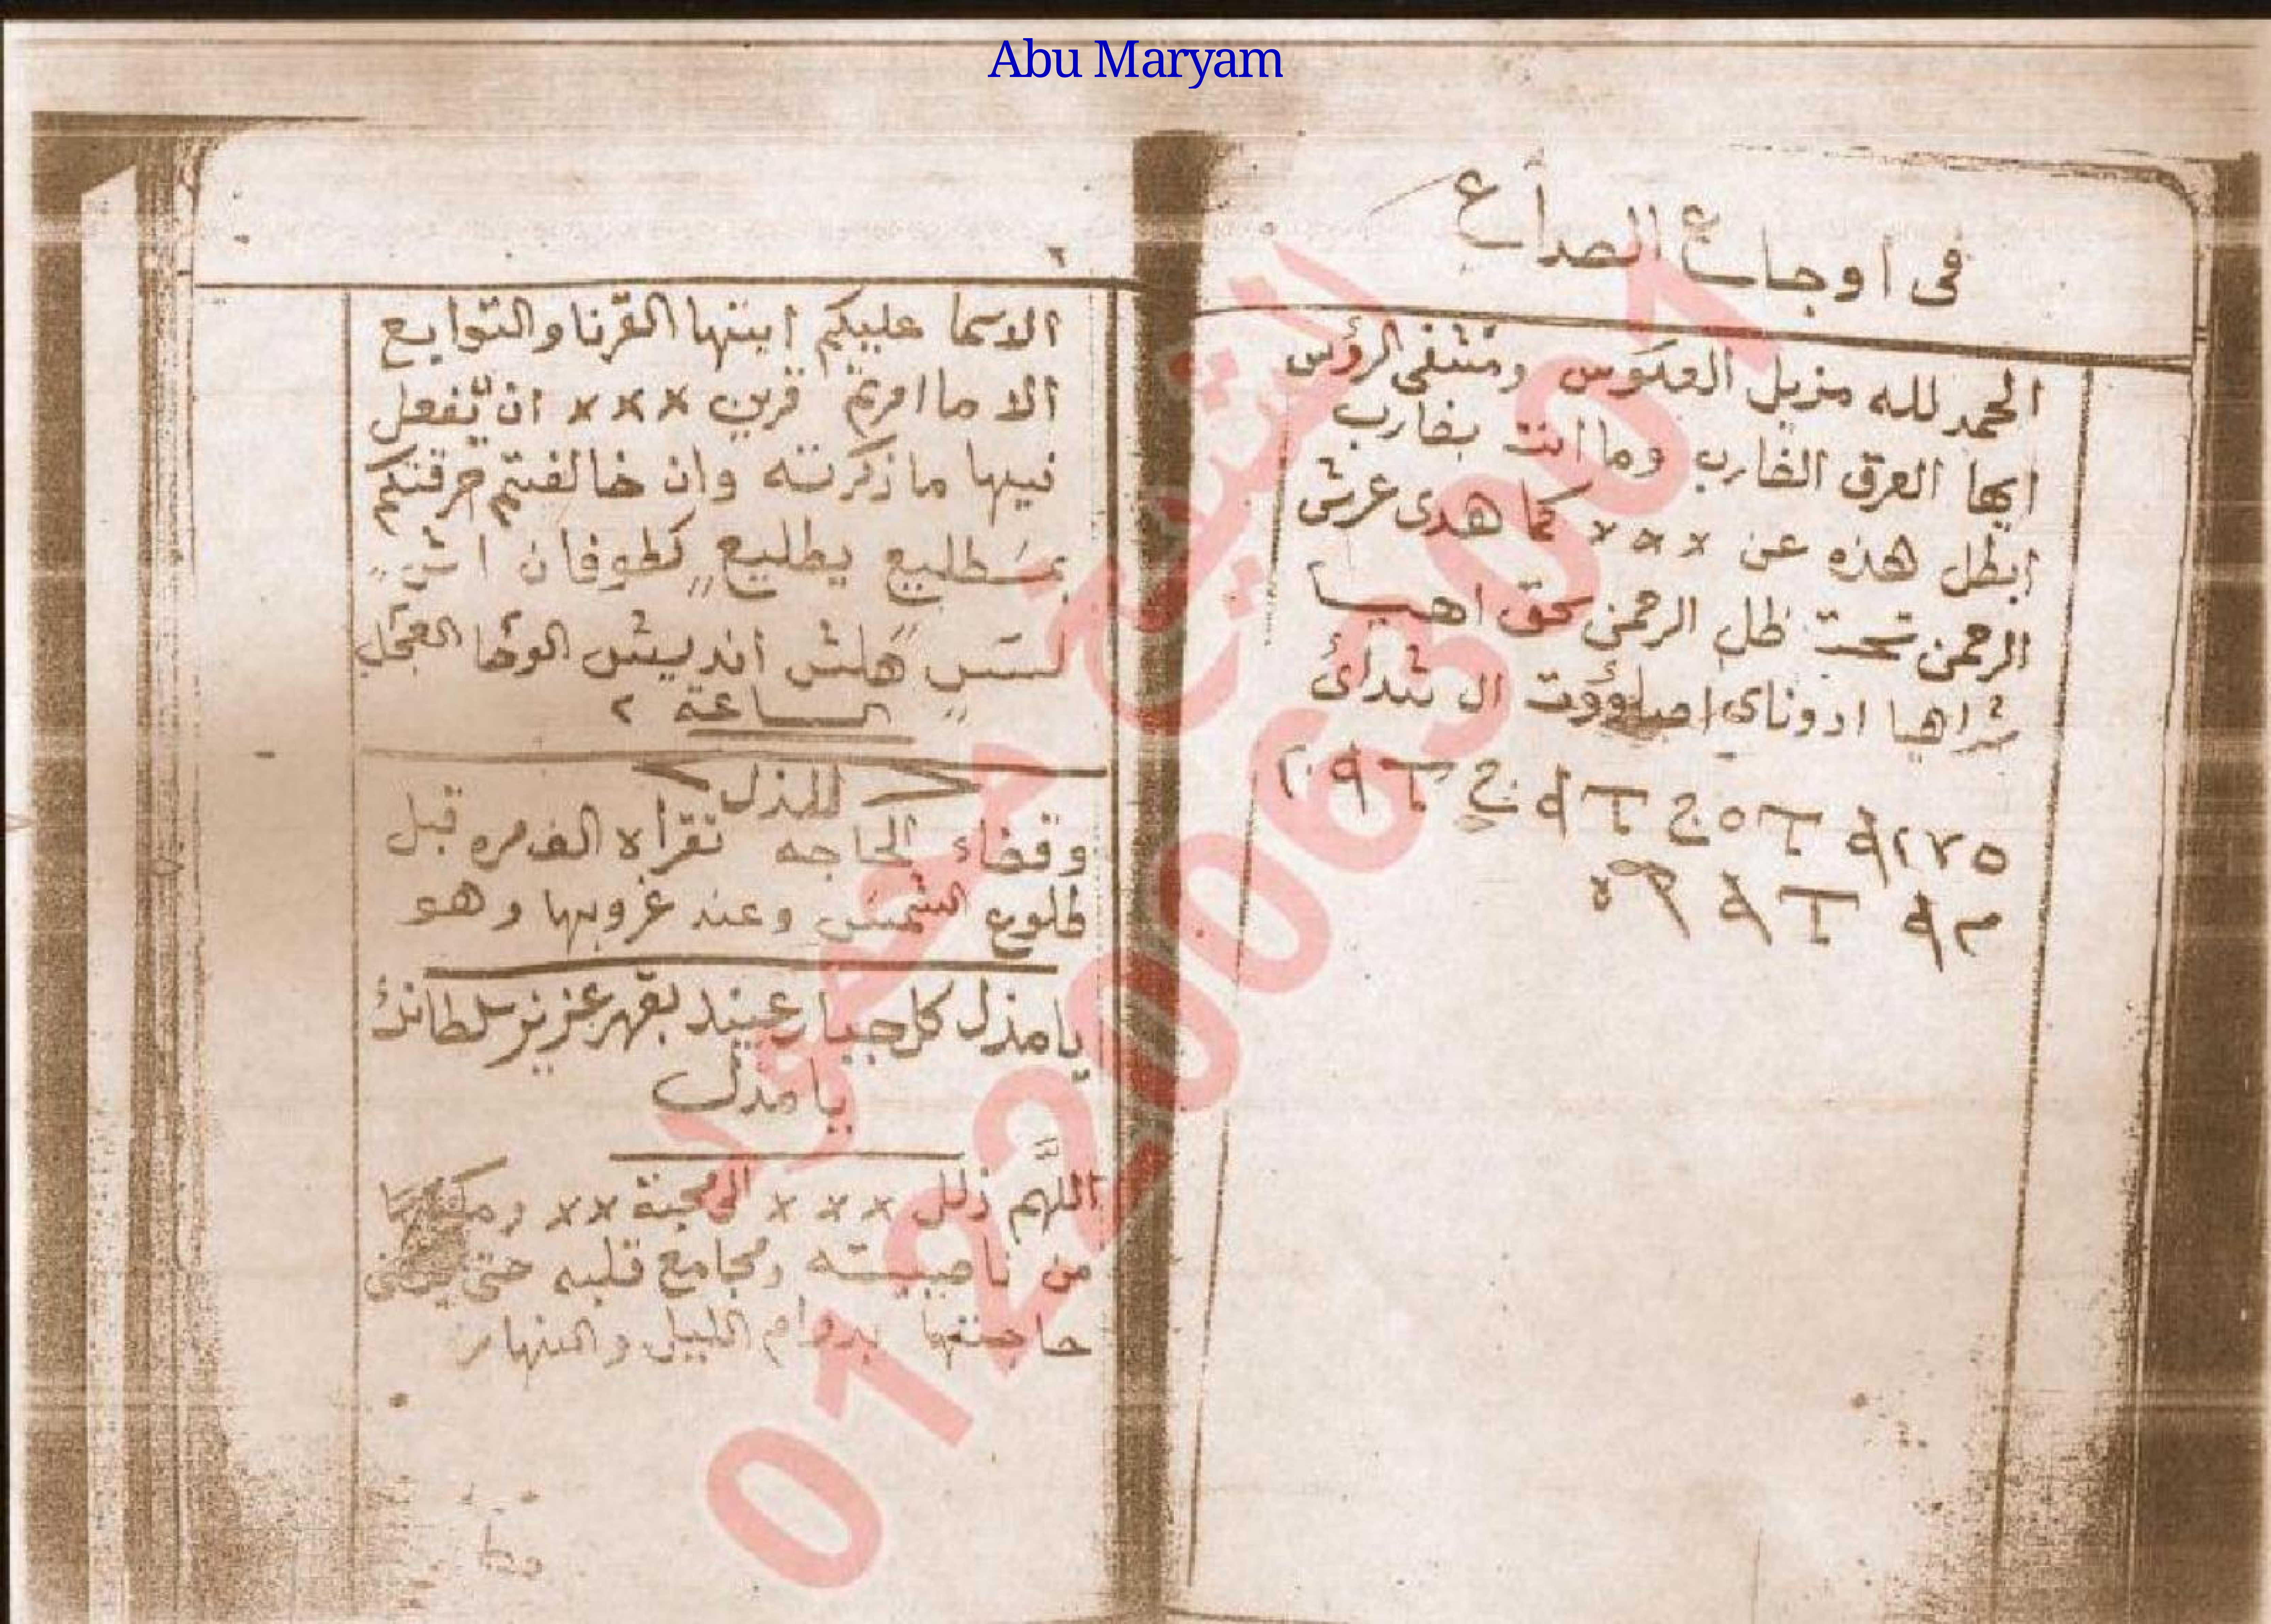 Abu Maryam
فى اوجاع الصداع
الحمد لله مزيل العكوس ومشفى الرؤس
ايها العرق الضارب وما انت بضارب
ابطل هذه عن ××× كما هدى عرش
الرحمن تحت ظل الرحمن بحق اهيا
شراهيا ادوناي اصباؤوت ال شداى
الاسما عليكم ايتها القرنا والتوابع
الا ما امرتم قرين ××× ان يفعل
فيها ما ذكرته وان خالفتم حرقتكم
يطليع كطوفان اش
هلش اندیش الوحا العجل
الساعة ٢
للذل
وقضاء الحاجه تقراه الف مره قبل
طلوع الشمس وعند غروبها وهو
يا مذل كل جبار عنيد بقهر عزيز سلطانك
يا مذل
اللهم ذلل ××× الى محبة ××
من ناصيته ومجامع قلبه حتى
حاجتها بدوام الليل والنهار
01220063001